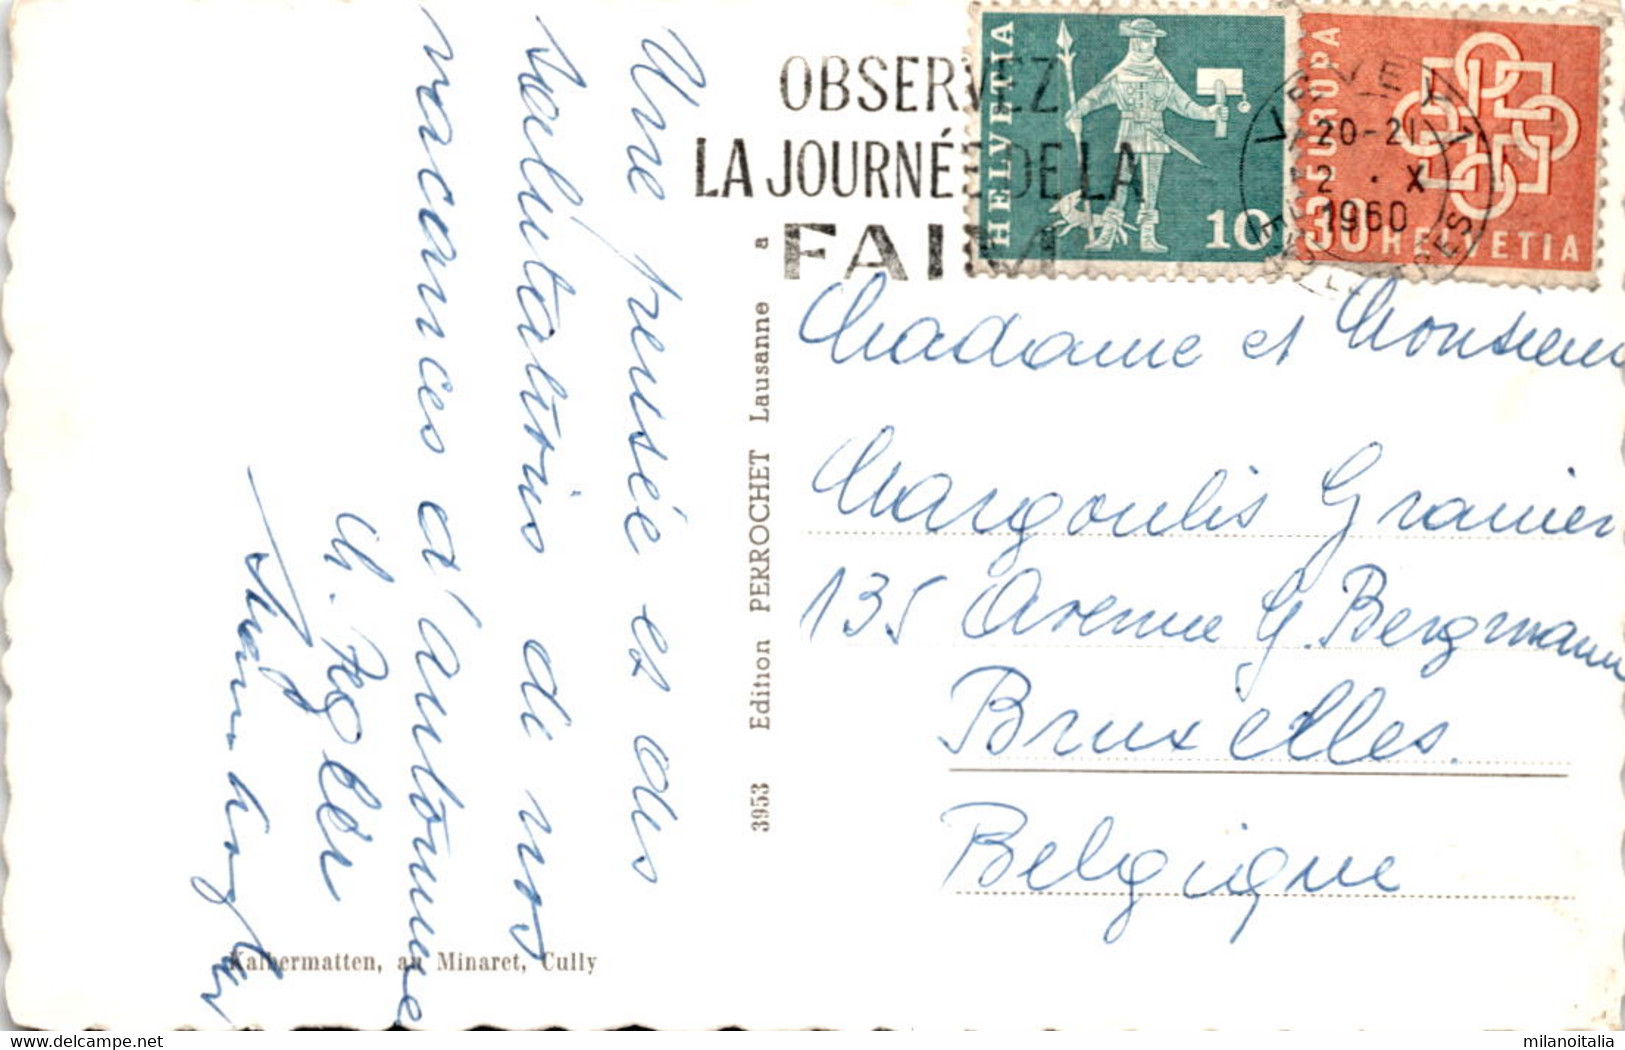 Une pensée et des
salutations de nos
vacances d'automne
OBSERVEZ
LA JOURNÉE DE LA
FAIM
HELVETIA
10
EUROPA
30 HELVETIA
VEVEY 1
20-21
2 · X
1960
Madame et Monsieur
Margoulis Granier
135 Avenue G. Bergmann
Bruxelles.
Belgique
3953 Edition PERROCHET Lausanne a
Kalbermatten, au Minaret, Cully
milanoitalia